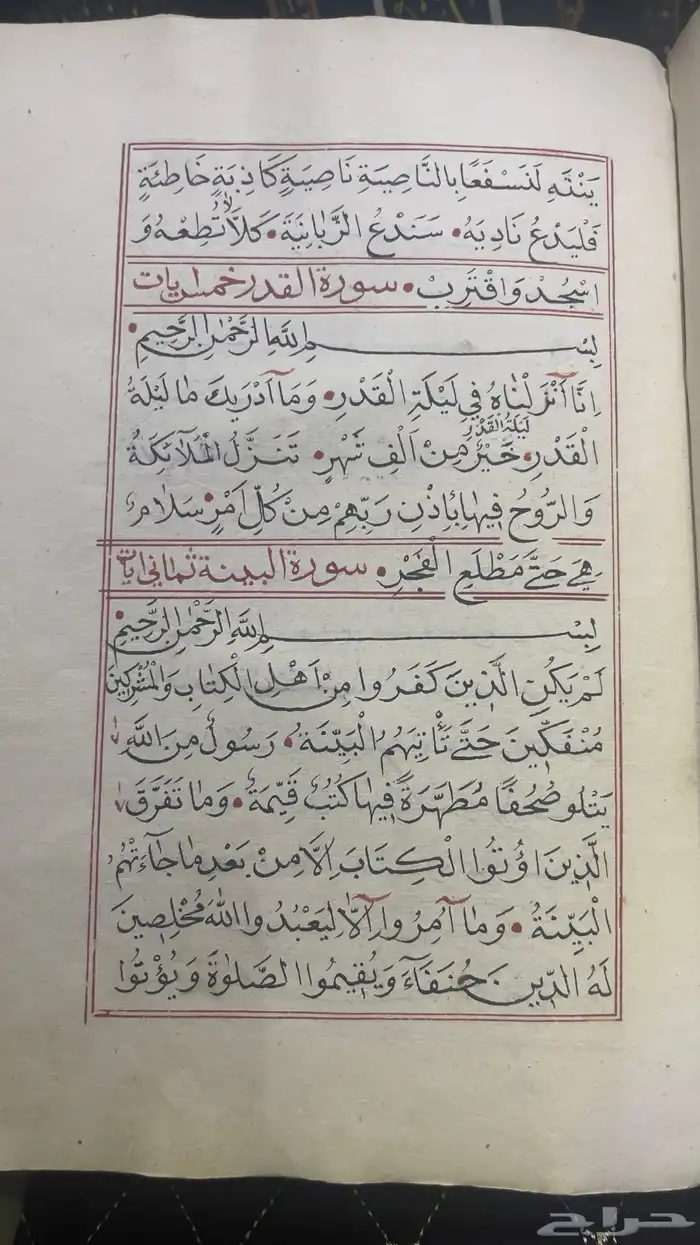 يَنْتَهِ لَنَسْفَعًا بِالنَّاصِيَةِ نَاصِيَةٍ كَاذِبَةٍ خَاطِئَةٍ
فَلْيَدْعُ نَادِيَهُ • سَنَدْعُ الزَّبَانِيَةَ • كَلَّا لَا تُطِعْهُ وَ
اسْجُدْ وَاقْتَرِبْ • سورة القدر خمس ايات
بِسْمِ اللَّهِ الرَّحْمٰنِ الرَّحِيمِ •
اِنَّا اَنْزَلْنَاهُ فِي لَيْلَةِ الْقَدْرِ • وَمَا اَدْرٰيكَ مَا لَيْلَةُ
الْقَدْرِ • لَيْلَةُ الْقَدْرِ خَيْرٌ مِنْ اَلْفِ شَهْرٍ • تَنَزَّلُ الْمَلَائِكَةُ
وَالرُّوحُ فِيهَا بِاِذْنِ رَبِّهِمْ مِنْ كُلِّ اَمْرٍ • سَلَامٌ
هِيَ حَتَّى مَطْلَعِ الْفَجْرِ • سورة البينة ثماني ايات
بِسْمِ اللَّهِ الرَّحْمٰنِ الرَّحِيمِ
لَمْ يَكُنِ الَّذِينَ كَفَرُوا مِنْ اَهْلِ الْكِتَابِ وَالْمُشْرِكِينَ
مُنْفَكِّينَ حَتَّى تَأْتِيَهُمُ الْبَيِّنَةُ • رَسُولٌ مِنَ اللَّهِ
يَتْلُو صُحُفًا مُطَهَّرَةً فِيهَا كُتُبٌ قَيِّمَةٌ • وَمَا تَفَرَّقَ
الَّذِينَ اُوتُوا الْكِتَابَ اِلَّا مِنْ بَعْدِ مَا جَاءَتْهُمُ
الْبَيِّنَةُ • وَمَا اُمِرُوا اِلَّا لِيَعْبُدُوا اللَّهَ مُخْلِصِينَ
لَهُ الدِّينَ حُنَفَاءَ وَيُقِيمُوا الصَّلٰوةَ وَيُؤْتُوا
حراج